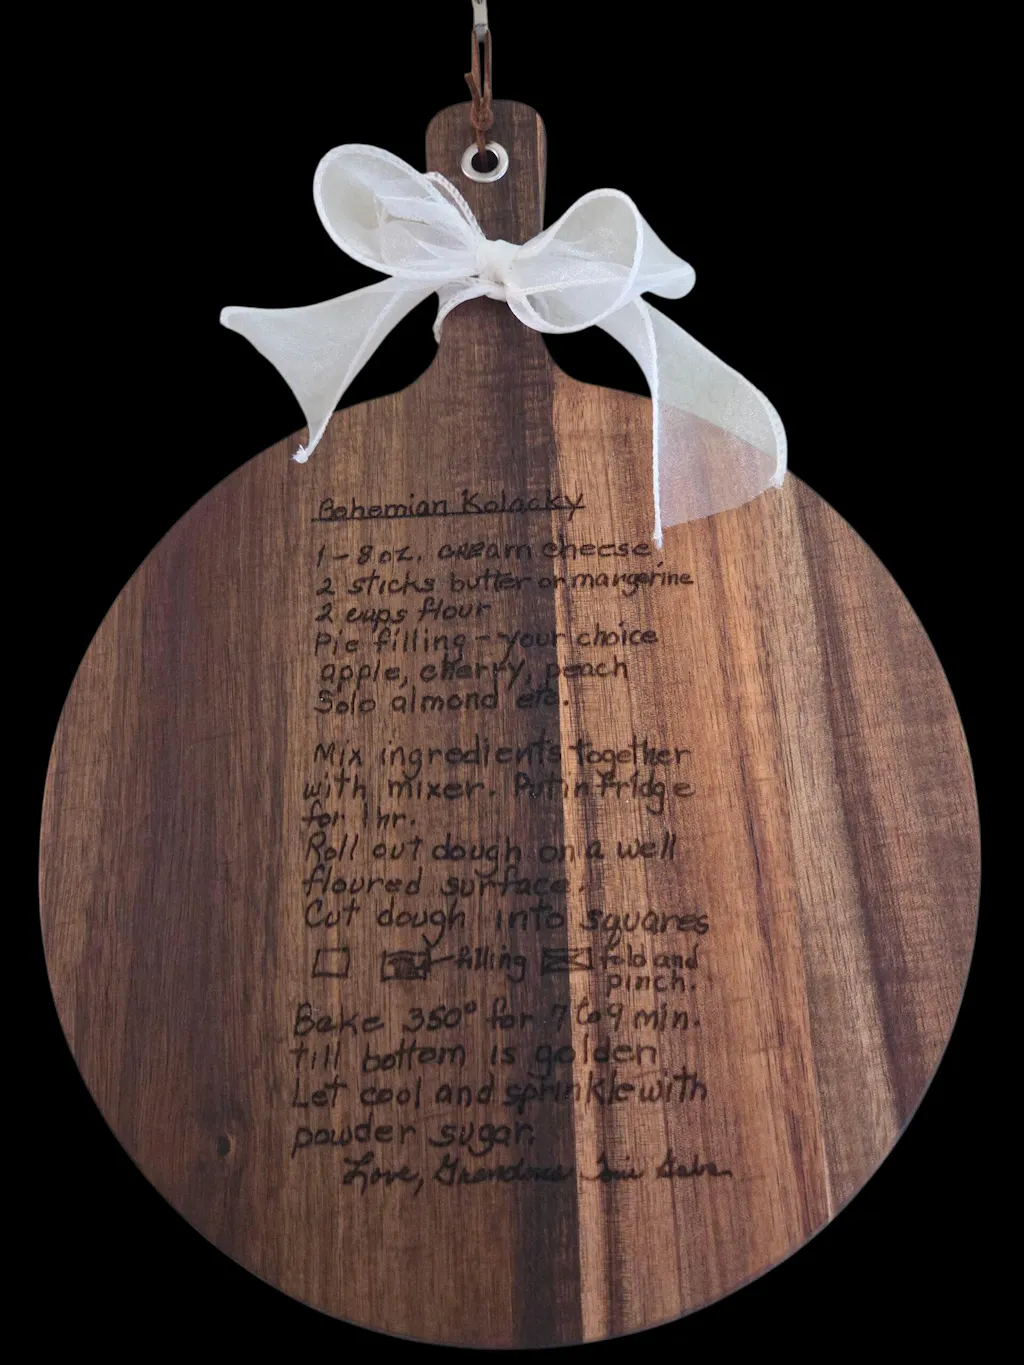 Bohemian Kolacky
1 - 8 oz. cream cheese
2 sticks butter or margerine
2 cups flour
Pie filling - your choice
apple, cherry, peach
Solo almond etc.
Mix ingredients together
with mixer. Put in fridge
for 1 hr.
Roll out dough on a well
floured surface.
Cut dough into squares
filling fold and
pinch.
Bake 350° for 7 to 9 min.
till bottom is golden
Let cool and sprinkle with
powder sugar.
Love, Grandma